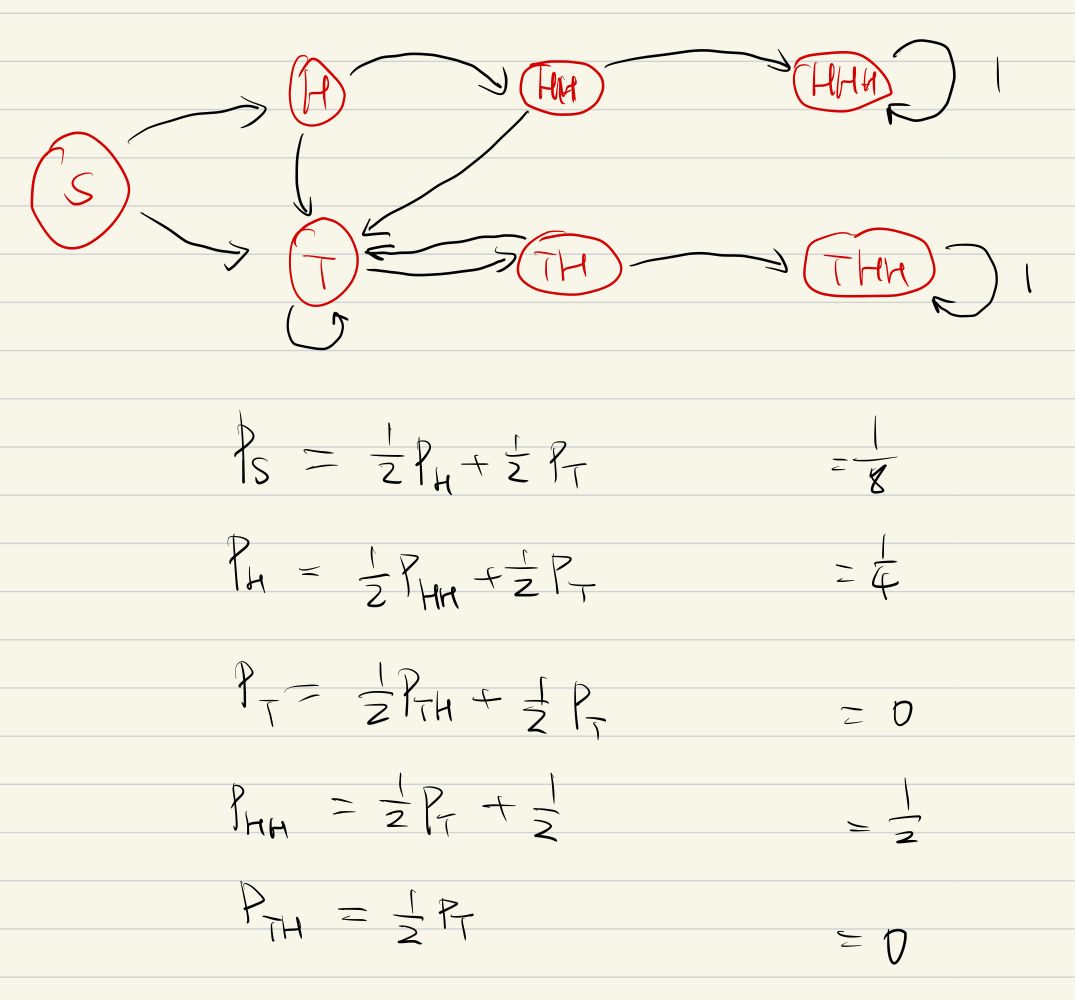 H HH HHH 1
S
T TH THH 1
P_S = 1/2 P_H + 1/2 P_T = 1/8
P_H = 1/2 P_HH + 1/2 P_T = 1/4
P_T = 1/2 P_TH + 1/2 P_T = 0
P_HH = 1/2 P_T + 1/2 = 1/2
P_TH = 1/2 P_T = 0